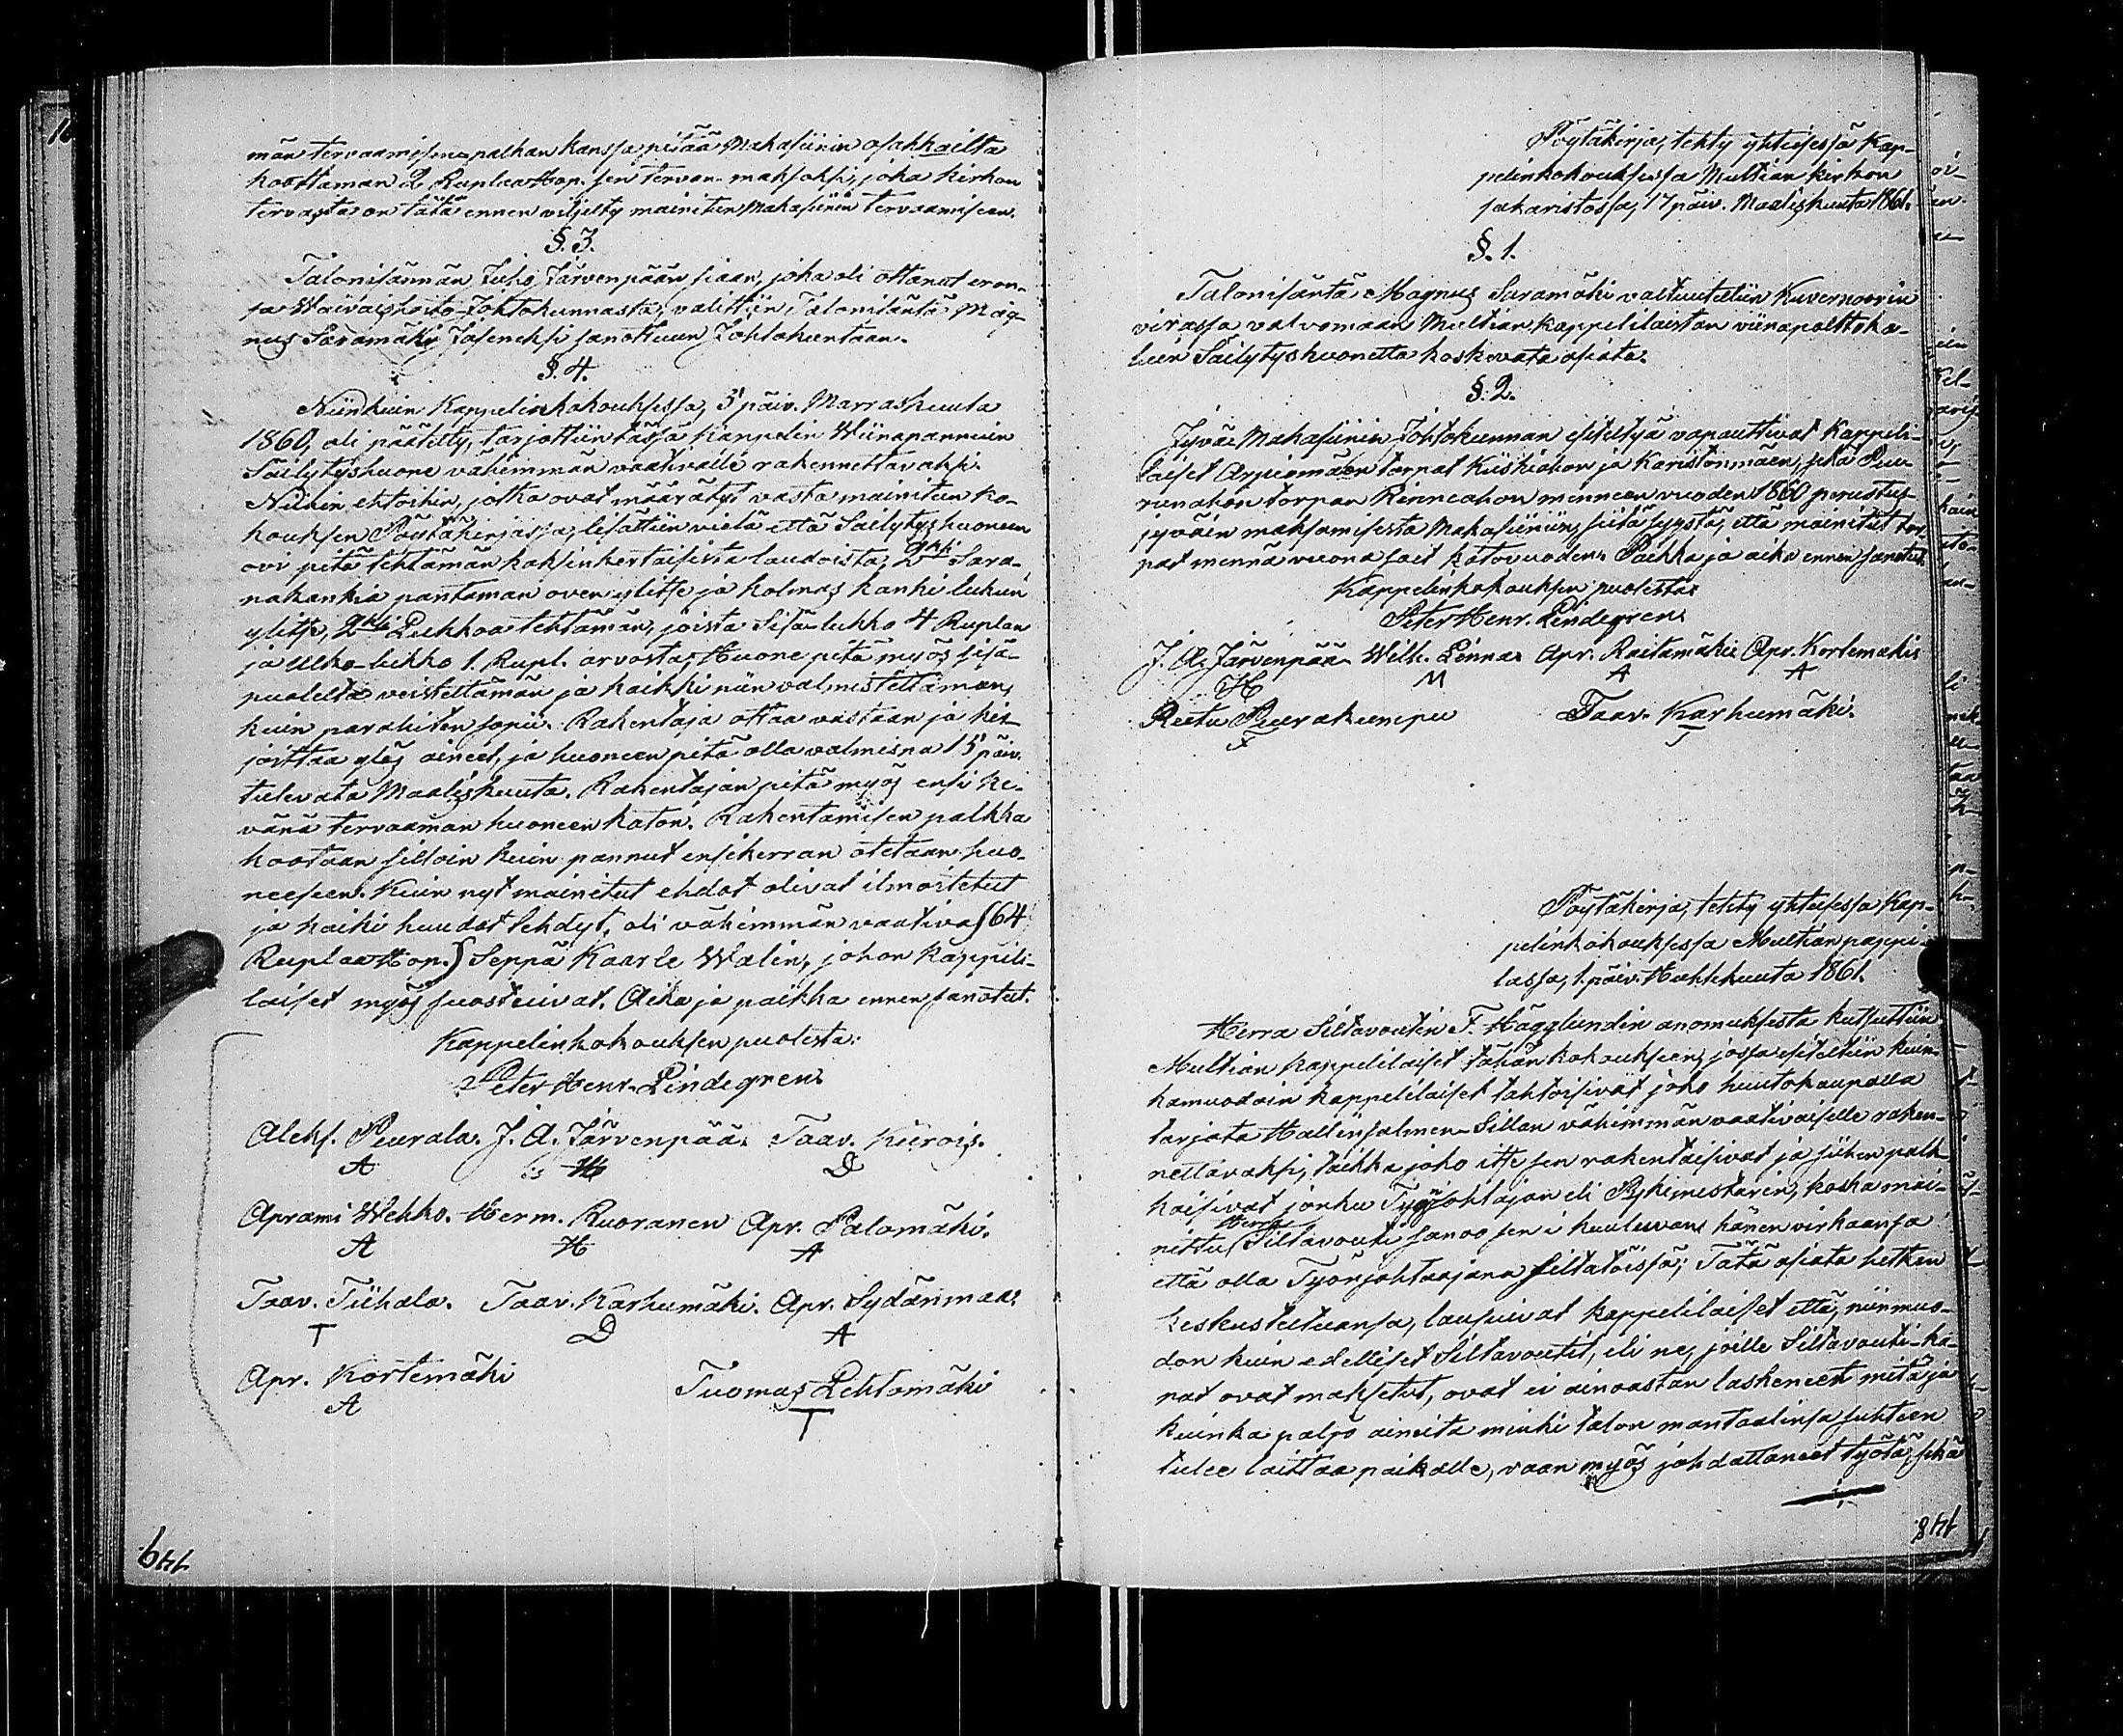 män tervaamisen palkan kanssa pitää Makasiinin osakkailta
koottaman 2 Ruplaa Hop. sen tervan maksoksi, joka kirkon
tervasta on tätä ennen viljelty mainitun Makasiinin tervaamiseen.
§. 3.
Talonisännän Juho Järvenpään siaan, joka oli ottanut eron-
sa Waivaishoito-Johtokunnasta, valittiin Talonisäntä Mag-
nus Saramäki Jäseneksi sanottuun Johtokuntaan.
§. 4.
Niinkuin Kappelinkokouksessa, 5 päiv. Marraskuuta
1860, oli päätetty, tarjottiin tässä Kappelin Wiinapannuin
Säilytyshuone vähimmän vaativalle rakennettavaksi.
Niihin ehtoihin, jotka ovat määrätyt vasta mainitun ko-
kouksen Pöytäkirjassa, lisättiin vielä että Säilytyshuoneen
ovi pitä tehtämän kaksinkertaisista laudoista, 2ksi Sara-
nakankia pantaman oven ylitse ja kolmas kanki lukun
ylitse, 2ksi Lukkoa tehtämän, joista Sisä-lukko 4 Ruplan
ja Ulko-lukko 1. Rupl. arvosta; Huone pitä myös sisä-
puolelta veistettämän ja kaikki niin valmistettaman,
kuin parahiten sopii. Rakentaja ottaa vastaan ja kir-
joittaa ylös aineet, ja huoneen pitä olla valmisna 15 päiv.
tulevata Maaliskuuta. Rakentajan pitä myös ensi ke-
vänä tervaaman huoneen katon. Rakentamisen palkka
kootaan silloin kuin pannut ensikerran otetaan huo-
neeseen. Kuin nyt mainitut ehdot olivat ilmoitetut
ja kaiki huudot tehdyt, oli vähimmän vaativa (64
Ruplaa Hop.) Seppä Kaarle Walin, johon Kappeli-
laiset myös suostuivat. Aika ja paikka ennen sanotut.
Kappelinkokouksen puolesta:
Peter Henr. Lindegren.
Aleks. Peurala. J. A. Järvenpää. Taav. Kiirois.
A H D
Aprami Wehko. Herm. Ruoranen Apr. Palomäki.
A H A
Taav. Tiihala. Taav. Karhumäki. Apr. Sydänmaa.
T D A
Apr. Kortemäki Tuomas Lehtomäki
A T
149.
Pöytäkirja, tehty yhteisessä Kap-
pelinkokouksessa Multian kirkon
sakaristossa, 17 päiv. Maaliskuuta 1861.
§. 1.
Talonisäntä Magnus Saramäki valtuutettiin Kuvernoorin
virassa valvomaan Multian kappelilaistan viinapolttoka-
luin Säilytyshuonetta koskevata asiata.
§. 2.
Jyvä-Makasiinin Johtokunnan esiteltyä vapauttivat Kappeli-
laiset Arpiomäen torpat Kiiskiahon ja Karistonmäen, sekä Peu-
runahon torpan Rinneahon menneen vuoden 1860 perustus-
jyväin maksamisesta Makasiiniin, siitä syystä, että mainitut tor-
pat mennä vuona sait katovuoden. Paikka ja aika ennen sanotut.
Kappelinkokouksen puolesta:
Peter Henr. Lindegren.
J. A. Järvenpää. Wilh. Linna. Apr. Raitamäki. Apr. Kortemäki.
H M A A
Reetu Peurakumpu Taav. Karhumäki.
F T
Pöytäkirja, tehty yhteisessä Kap-
pelinkokouksessa Multian pappi-
lassa, 1. päiv. Huhtikuuta 1861.
Herra Siltavoutin F. Hägglundin anomuksesta kutsuttiin
Multian kappelilaiset tähän kokoukseen, jossa esiteltiin kuin-
kamuodoin kappelilaiset tahtoisivat joko huutokaupalla
tarjota Hallinsalmen-Sillan vähimmän vaativaiselle raken-
nettavaksi, taikka joko itse sen rakentaisivat ja siihen palk-
kaisivat jonku Työnjohtajan eli Pykimestarin, koska mai-
nittu Herra Siltavouti sanoo sen ei kuuluvan hänen virkaansa
että olla Työnjohtajana siltatöissä; Tätä asiata hetken
keskusteltuansa, lausuivat kappelilaiset että, niinmuo-
don kuin edelliset Siltavoutit, eli ne, joille Siltavouti-ka-
nat ovat maksetut, ovat ei ainoastan laskeneet mitä ja
kuinka paljo aineita minki talon mantaalinsa suhteen
tulee laittaa paikalle, vaan myös johdattaneet työtä, sekä
148.